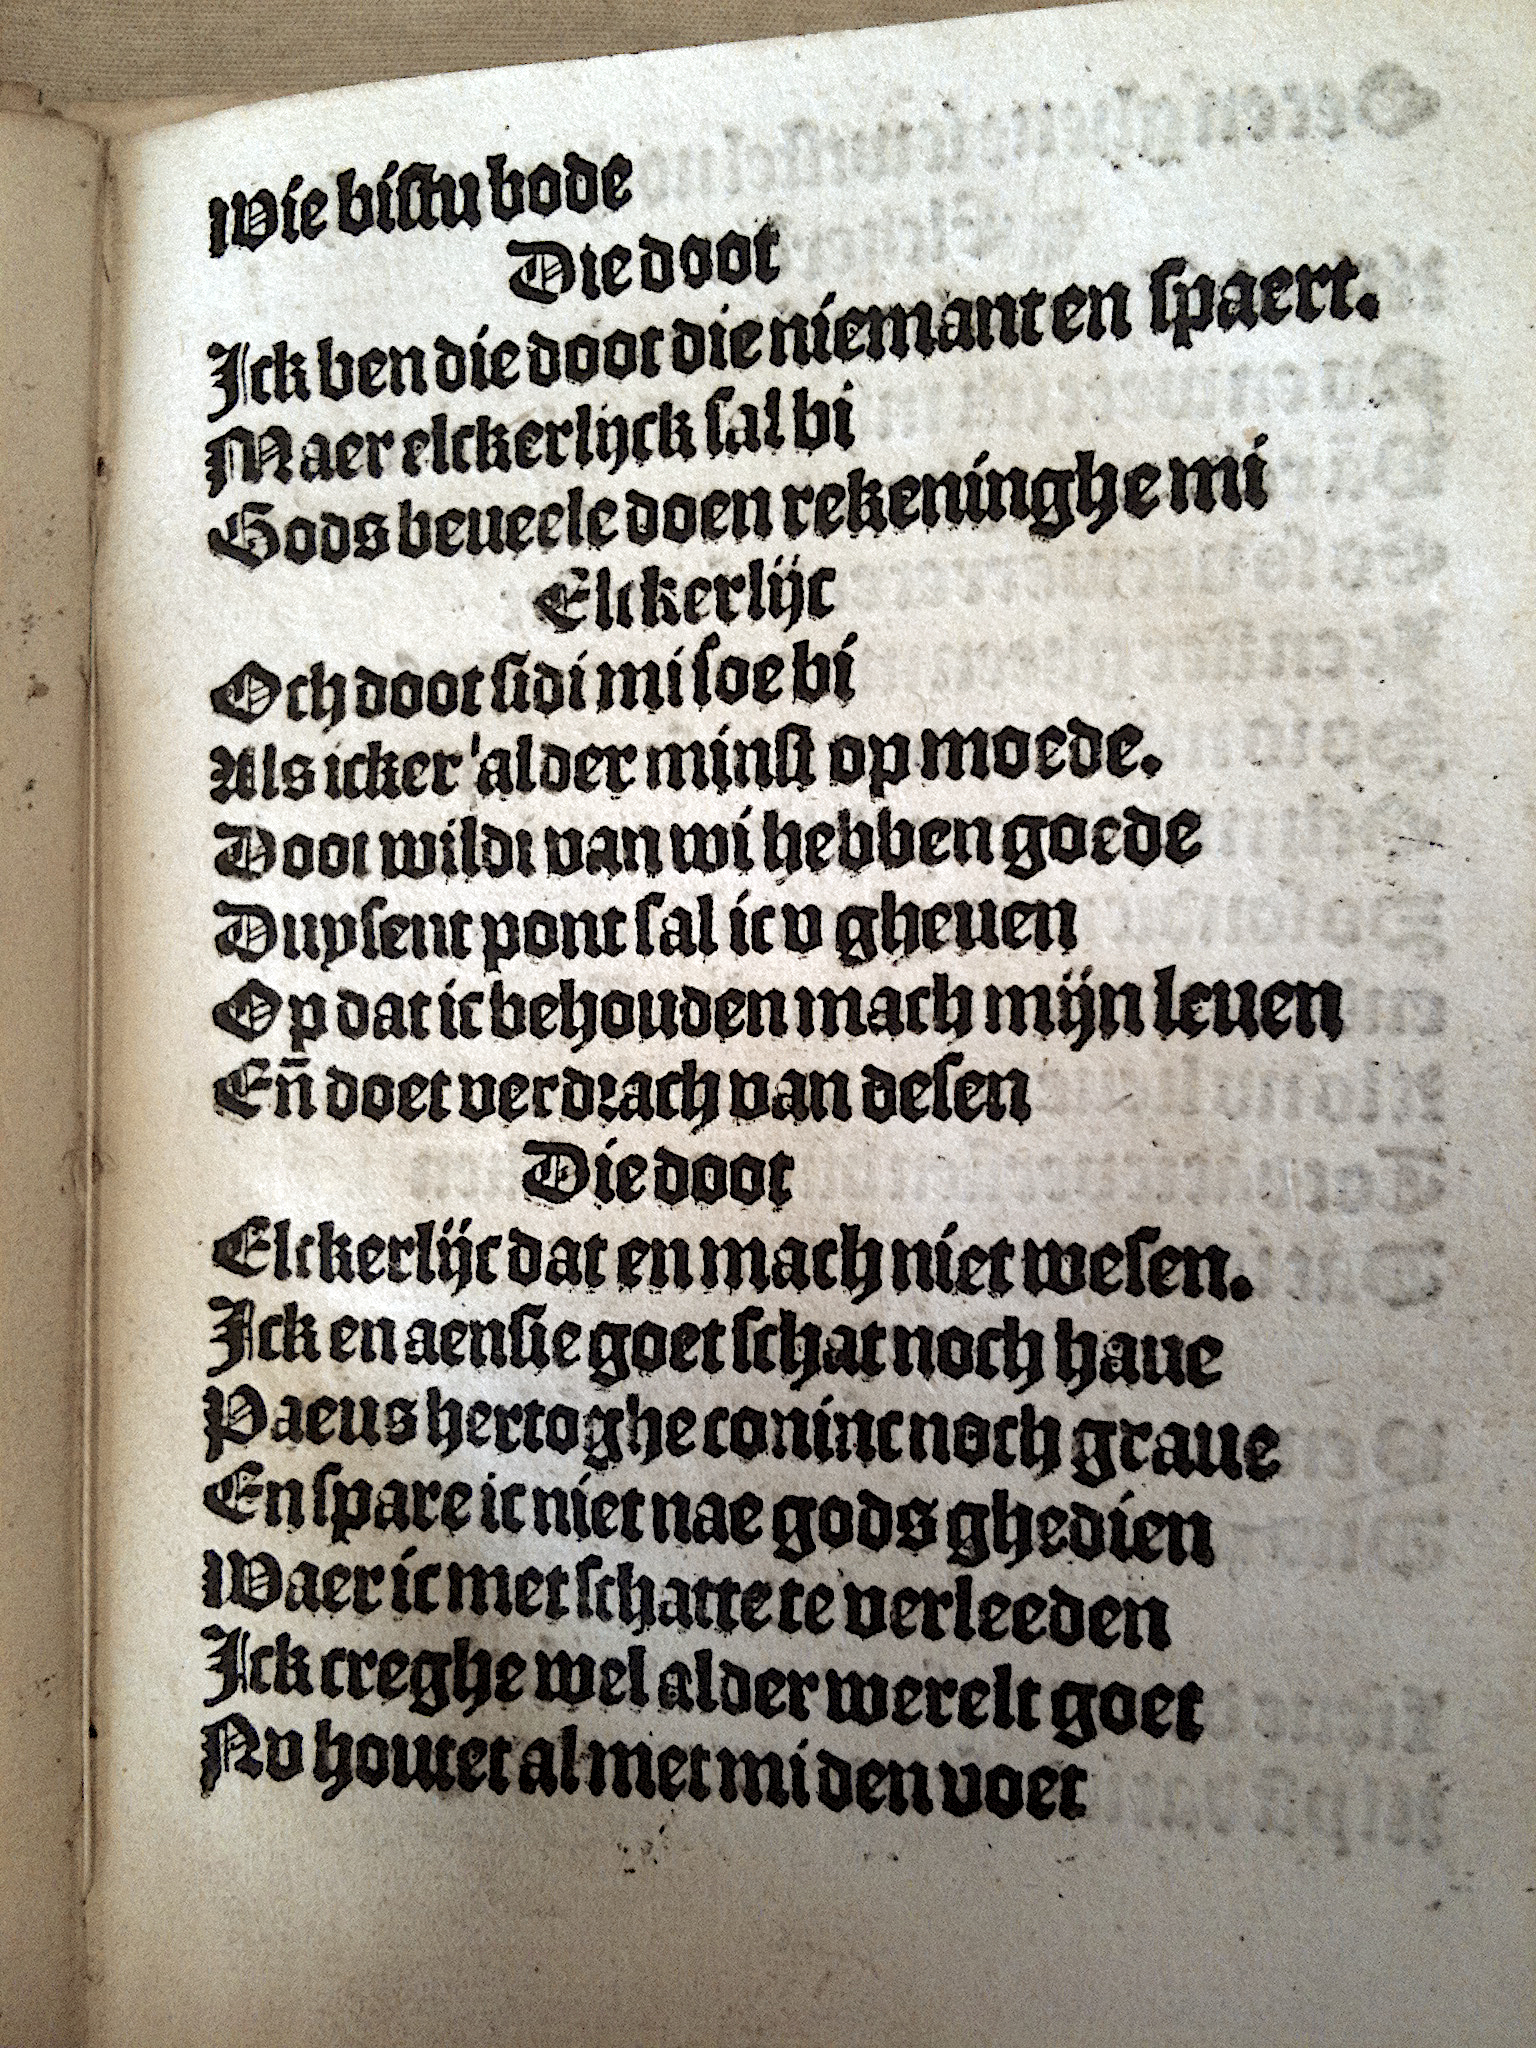 Wie bistu bode
Die doot
Ick ben die doot die niemant en spaert.
Maer elckerlijck sal bi
Gods beueele doen rekeninghe mi
Elckerlijc
Och doot sidi mi soe bi
Als icker alder minst op moede.
Doot wildi van wi hebben goede
Duysent pont sal ic v gheuen
Op dat ic behouden mach mijn leuen
Eñ doet verdrach van desen
Die doot
Elckerlijc dat en mach niet wesen.
Ick en aensie goet schat noch haue
Paeus hertoghe coninc noch graue
En spare ic niet nae gods ghedien
Waer ic met schatte te verleeden
Ick creghe wel alder werelt goet
Nv houtet al met mi den voet